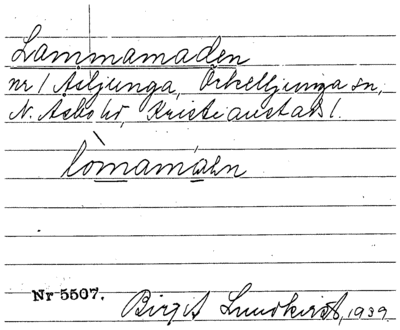 Lammamaden
nr 1 Åsljunga, Örkelljunga sn,
N. Åsbo hd, Kristianstads l.
lòmamáen
Nr 5507.
Birgit Lundkvist, 1939